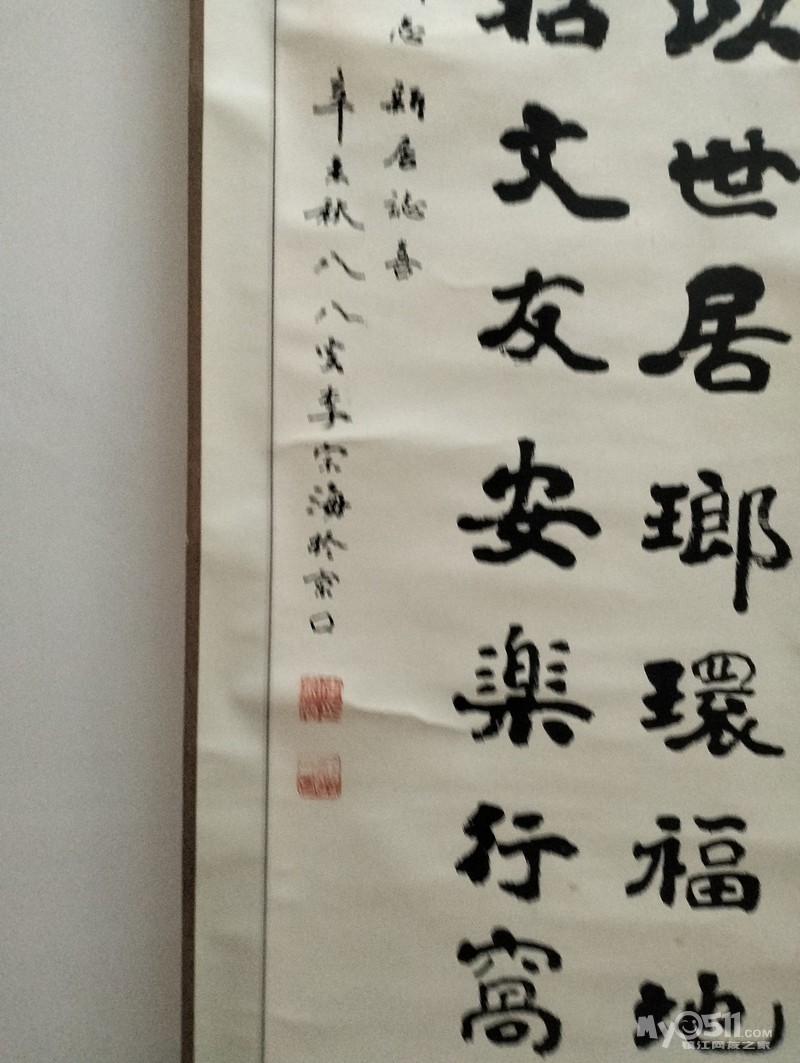 世居瑯環福地
招文友安樂行窩
志 新居誌喜
辛未秋八八叟李宗海於京口
My0511.COM
镇江网友之家